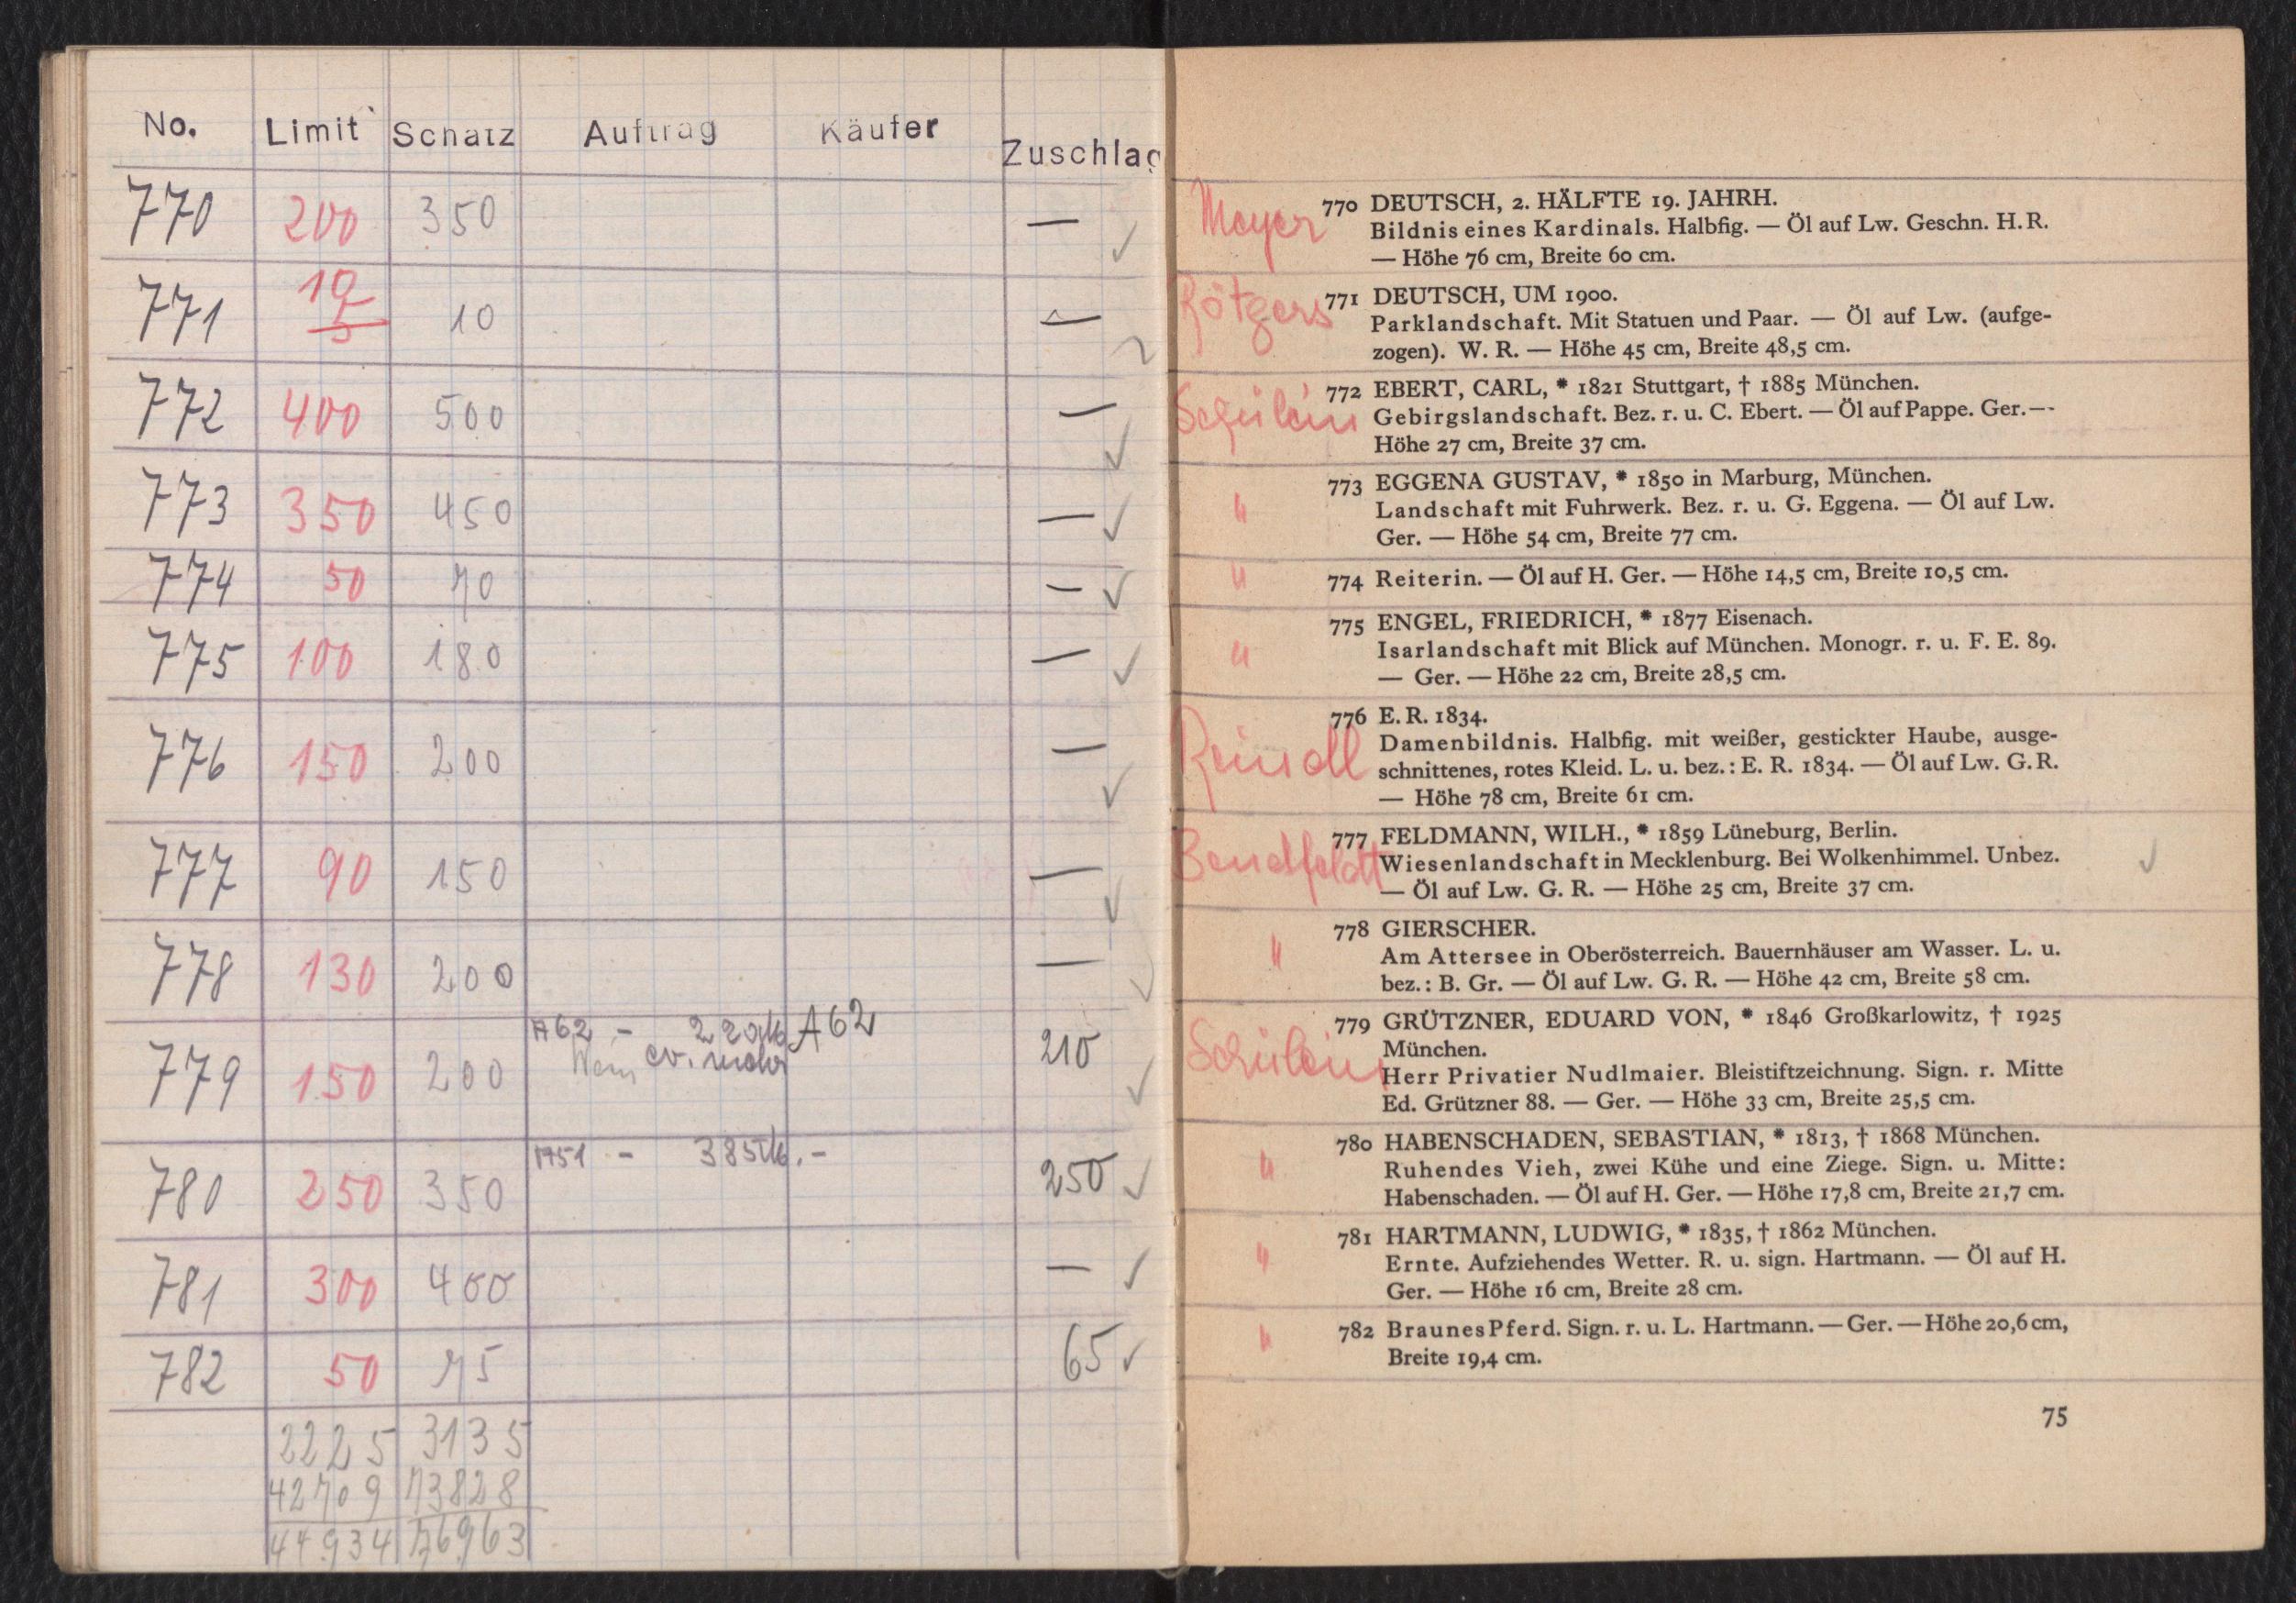 No. Limit Schatz Auftrag Käufer Zuschlag
770 200 350 —
771 10 5 10 —
772 400 500 —
773 350 450 —
774 50 70 —
775 100 180 —
776 150 200 —
777 90 150 —
778 130 200 —
779 150 200 A62 – A62 210
780 250 350 A51 – 385 .– 250
781 300 400 —
782 50 75 65
2225 3135
42709 73828
44934 76963
Meyer 770 DEUTSCH, 2. HÄLFTE 19. JAHRH.
Bildnis eines Kardinals. Halbfig. — Öl auf Lw. Geschn. H. R.
— Höhe 76 cm, Breite 60 cm.
Rötgers 771 DEUTSCH, UM 1900.
Parklandschaft. Mit Statuen und Paar. — Öl auf Lw. (aufge-
zogen). W. R. — Höhe 45 cm, Breite 48,5 cm.
Schülein 772 EBERT, CARL, * 1821 Stuttgart, † 1885 München.
Gebirgslandschaft. Bez. r. u. C. Ebert. — Öl auf Pappe. Ger. —
Höhe 27 cm, Breite 37 cm.
" 773 EGGENA GUSTAV, * 1850 in Marburg, München.
Landschaft mit Fuhrwerk. Bez. r. u. G. Eggena. — Öl auf Lw.
Ger. — Höhe 54 cm, Breite 77 cm.
" 774 Reiterin. — Öl auf H. Ger. — Höhe 14,5 cm, Breite 10,5 cm.
" 775 ENGEL, FRIEDRICH, * 1877 Eisenach.
Isarlandschaft mit Blick auf München. Monogr. r. u. F. E. 89.
— Ger. — Höhe 22 cm, Breite 28,5 cm.
Reindl 776 E. R. 1834.
Damenbildnis. Halbfig. mit weißer, gestickter Haube, ausge-
schnittenes, rotes Kleid. L. u. bez.: E. R. 1834. — Öl auf Lw. G. R.
— Höhe 78 cm, Breite 61 cm.
Bendfeldt 777 FELDMANN, WILH., * 1859 Lüneburg, Berlin.
Wiesenlandschaft in Mecklenburg. Bei Wolkenhimmel. Unbez.
— Öl auf Lw. G. R. — Höhe 25 cm, Breite 37 cm.
" 778 GIERSCHER.
Am Attersee in Oberösterreich. Bauernhäuser am Wasser. L. u.
bez.: B. Gr. — Öl auf Lw. G. R. — Höhe 42 cm, Breite 58 cm.
Schülein 779 GRÜTZNER, EDUARD VON, * 1846 Großkarlowitz, † 1925
München.
Herr Privatier Nudlmaier. Bleistiftzeichnung. Sign. r. Mitte
Ed. Grützner 88. — Ger. — Höhe 33 cm, Breite 25,5 cm.
" 780 HABENSCHADEN, SEBASTIAN, * 1813, † 1868 München.
Ruhendes Vieh, zwei Kühe und eine Ziege. Sign. u. Mitte:
Habenschaden. — Öl auf H. Ger. — Höhe 17,8 cm, Breite 21,7 cm.
" 781 HARTMANN, LUDWIG, * 1835, † 1862 München.
Ernte. Aufziehendes Wetter. R. u. sign. Hartmann. — Öl auf H.
Ger. — Höhe 16 cm, Breite 28 cm.
" 782 Braunes Pferd. Sign. r. u. L. Hartmann. — Ger. — Höhe 20,6 cm,
Breite 19,4 cm.
75